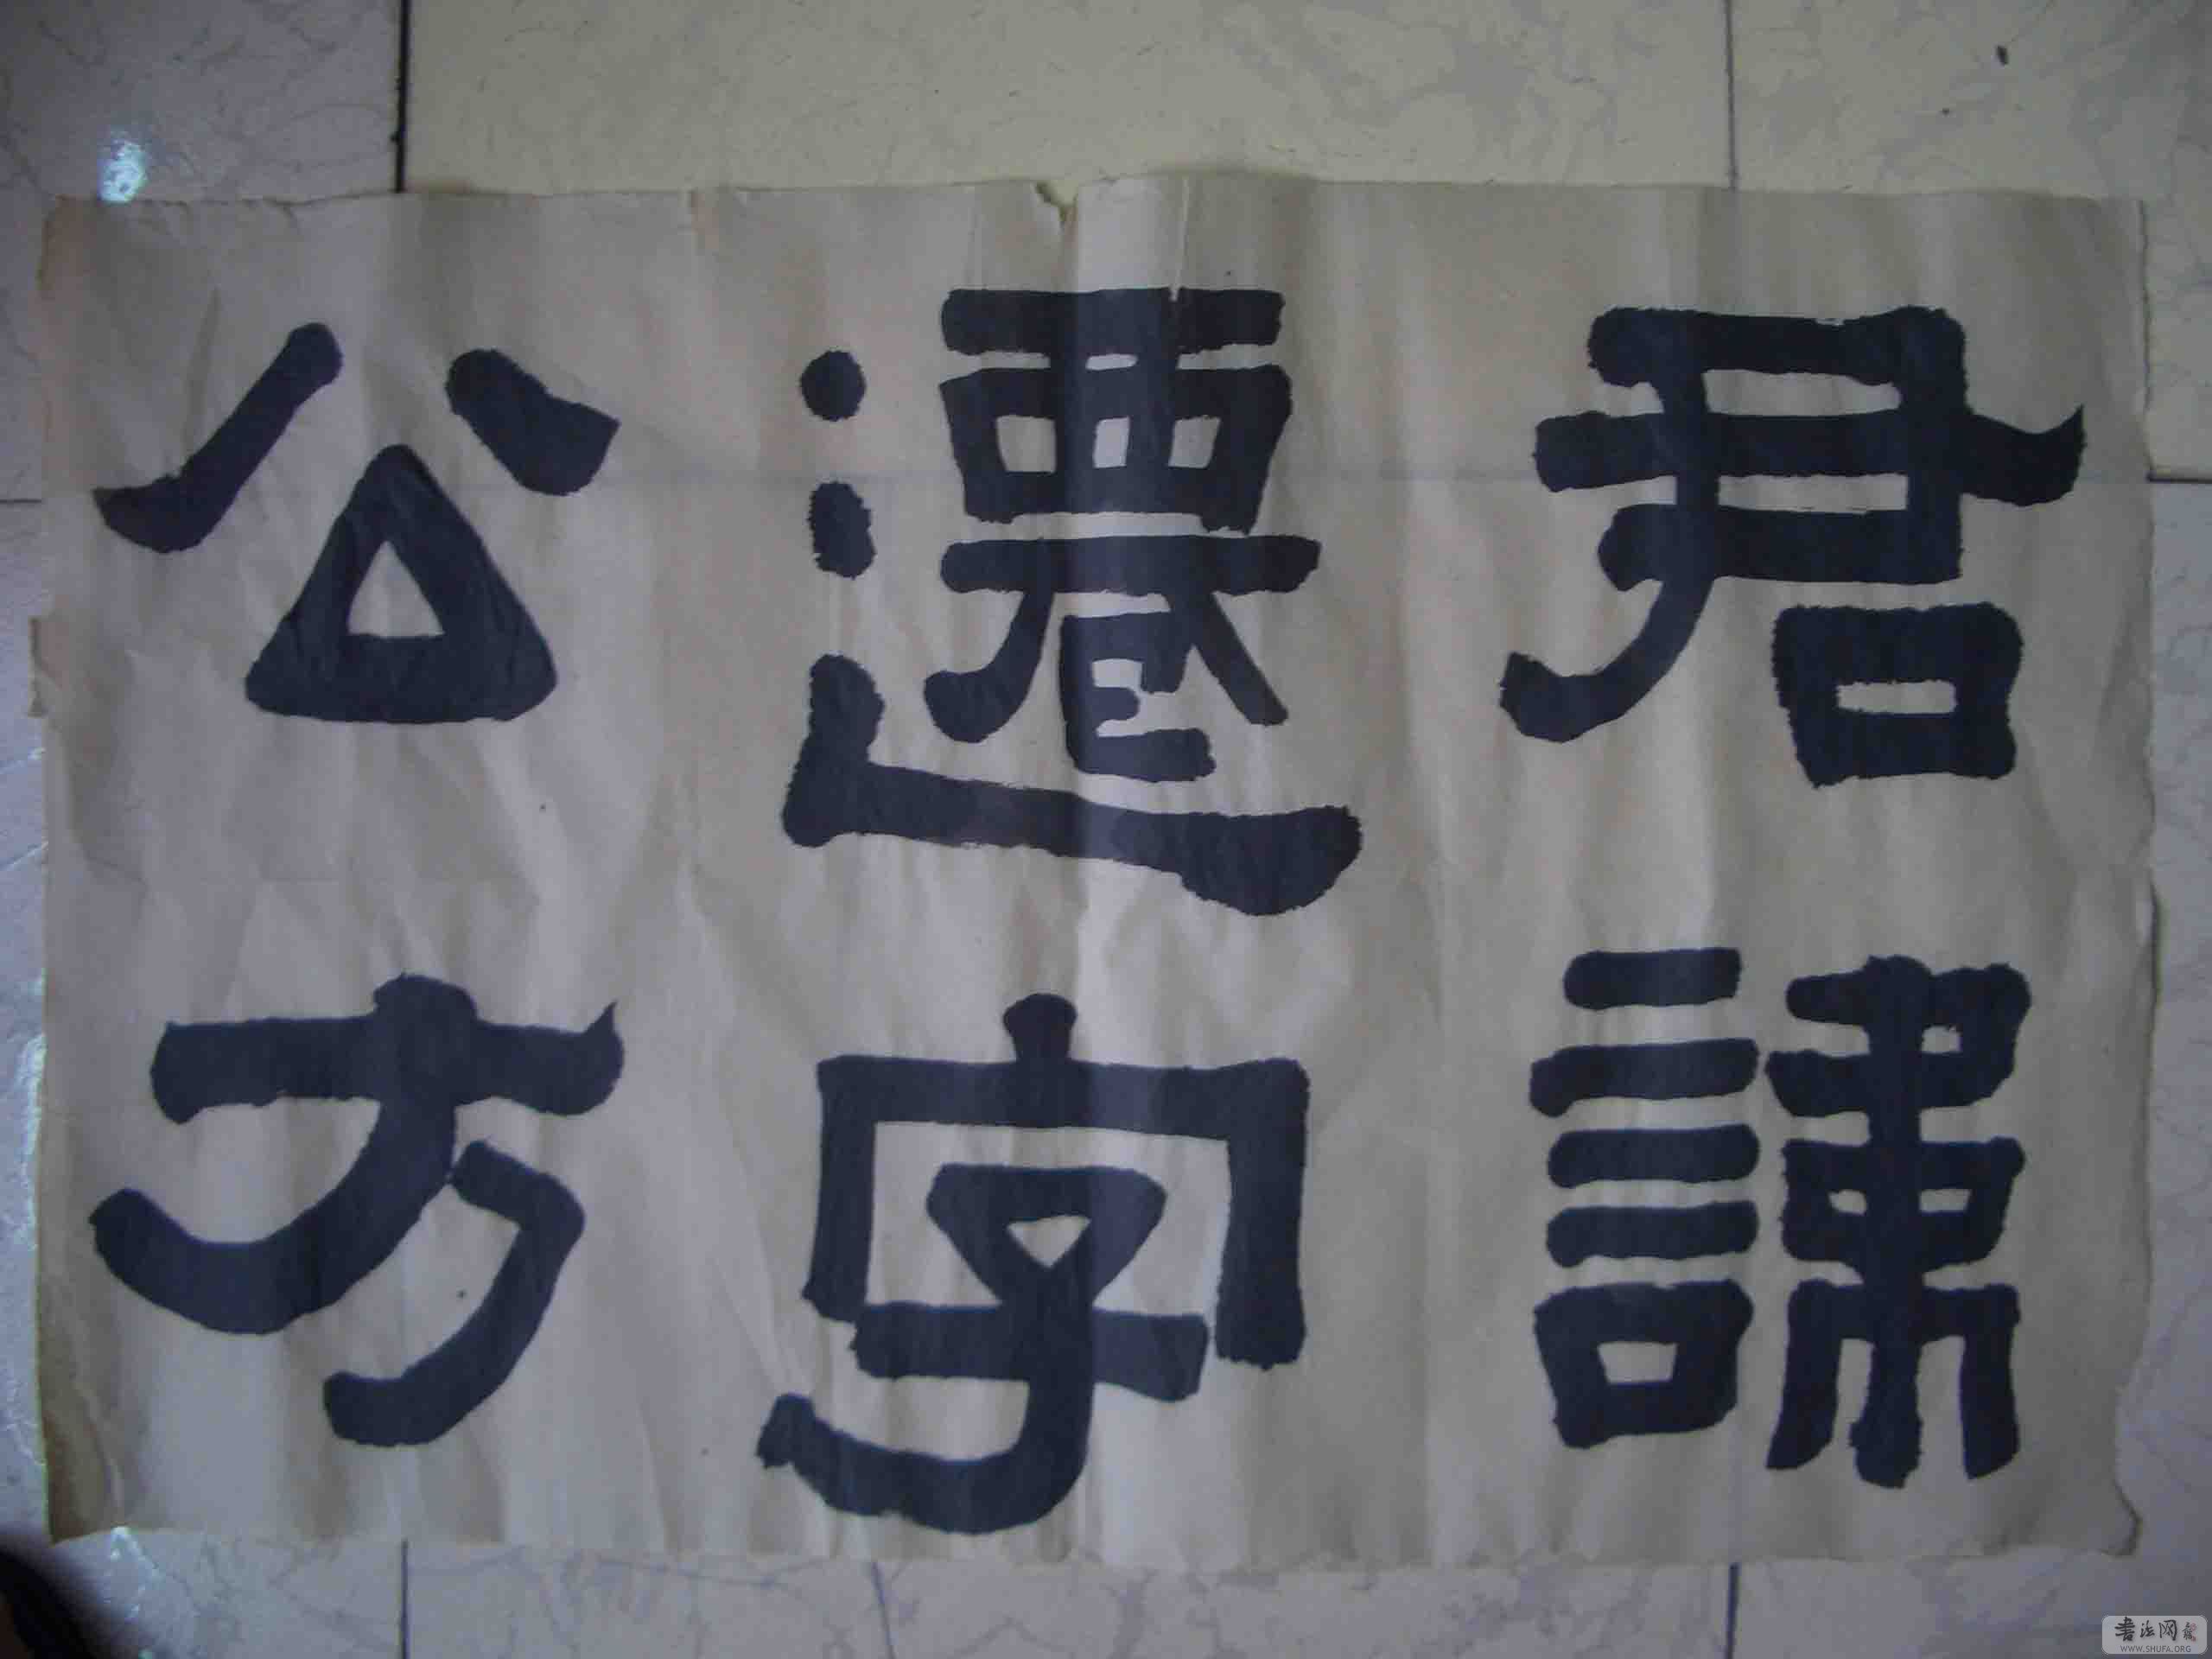 君諱
遷字
公方
書法网
WWW.SHUFA.ORG